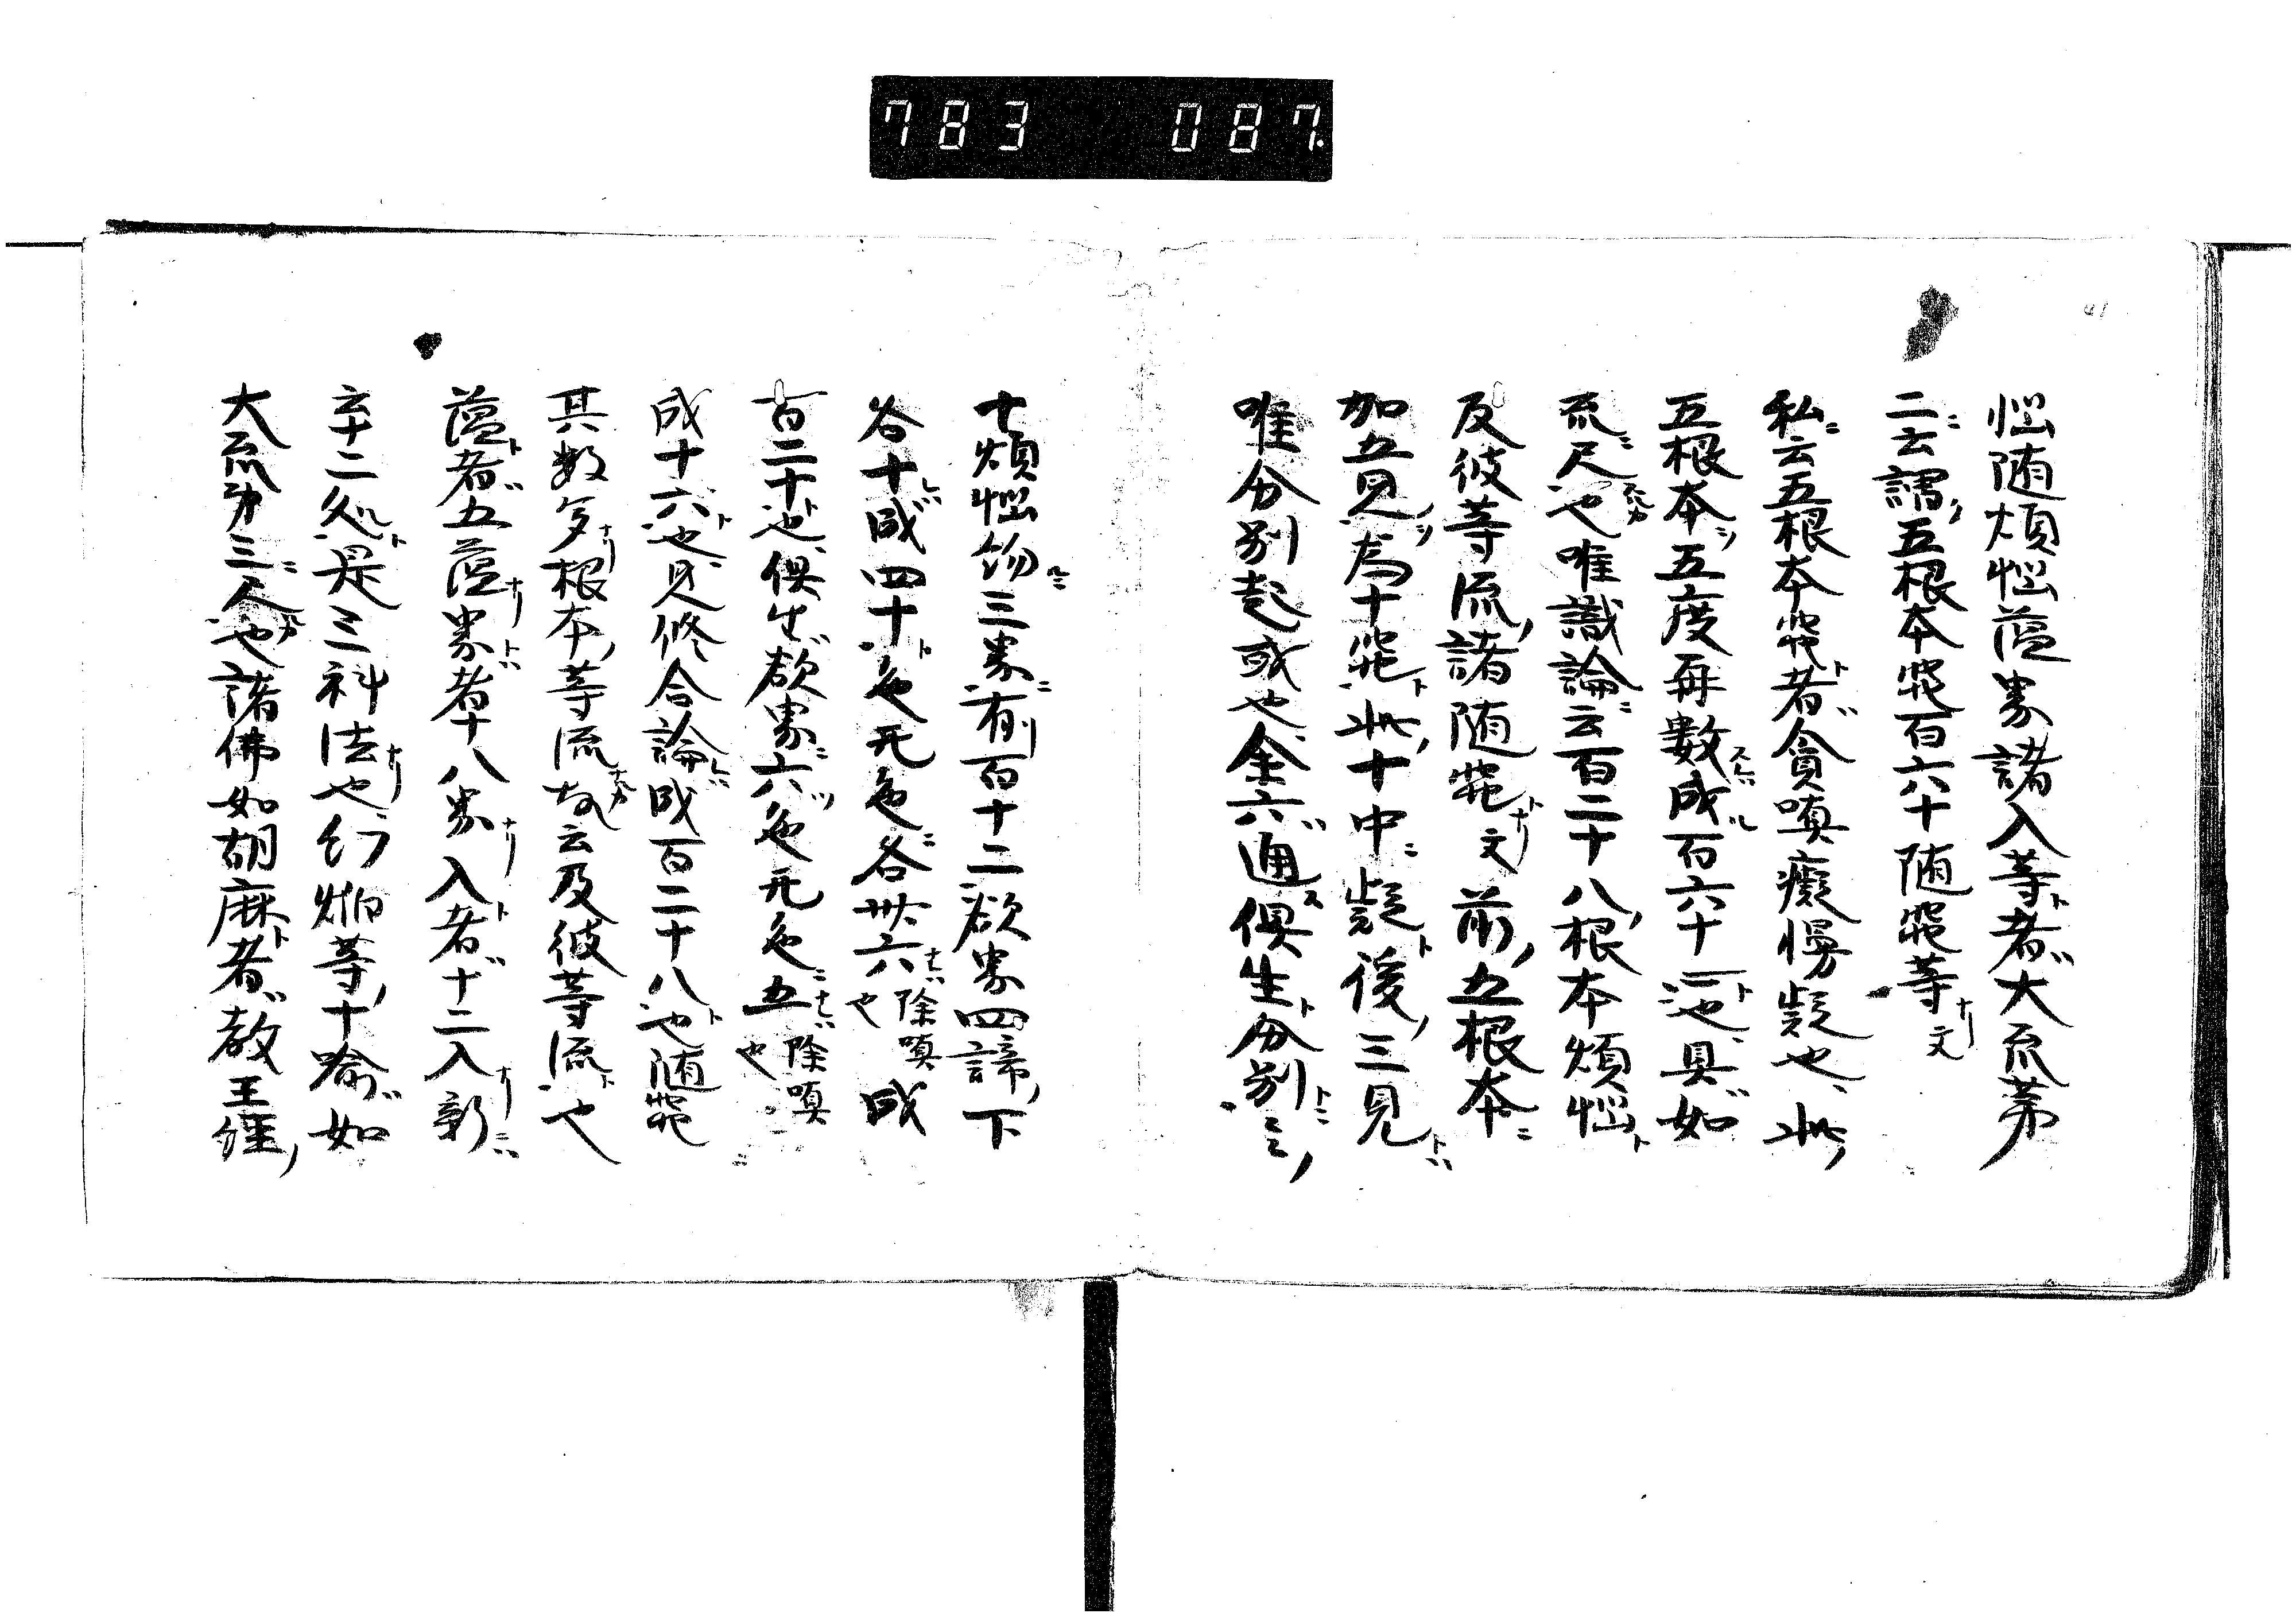 783 087.
惱随煩惱蘊界諸入等者大疏第
二云謂五根本𤇆百六十随𤇆等文
私云五根本𤇆者貪嗔癡慢疑也此
五根本五度再數成百六十也具如
疏尺也唯識論云百二十八根本煩惱
及彼等流諸随𤇆文前五根本
加五見為十𤇆此十中疑後三見
唯分別起或也余六通俱生分別云云
十煩惱約三界有百十二欲界四諦下
各十成四十色无色各卅六除嗔也成
百二十也俱生欲界六色无色五除嗔也
成十六也見修合論成百二十八也随𤇆
其数多根本等流故云及彼等流也
蘊者五蘊界者十八界入者十二入新
云十二処是三科法也幻焔等十喩如
大疏第三尺也諸佛如胡麻者教王經